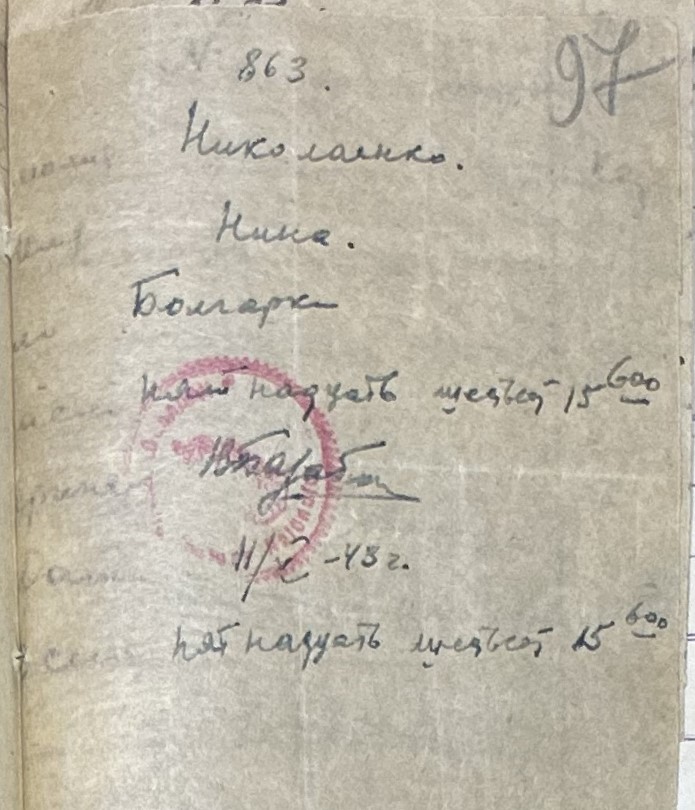 97
863.
Николаенко.
Нина.
Болгарка
пятнадцать шестьсот 15 600
11/X -43 г.
пятнадцать шестьсот 15 600